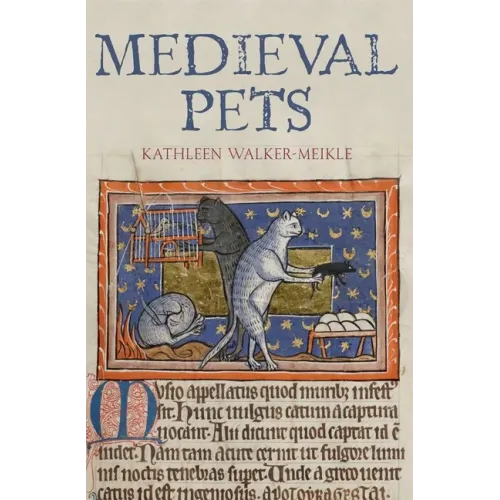 MEDIEVAL
PETS
KATHLEEN WALKER-MEIKLE
Musio appellatus quod muribꝫ infestꝰ
sit. Hunc uulgus catum a captura
uocant. Alii dicunt quod captat id ē
uidet. Nam tam acute cernit ut fulgore lumi
nis noctis tenebras superet. Unde a greco uenit
catus id est ingeniosus.